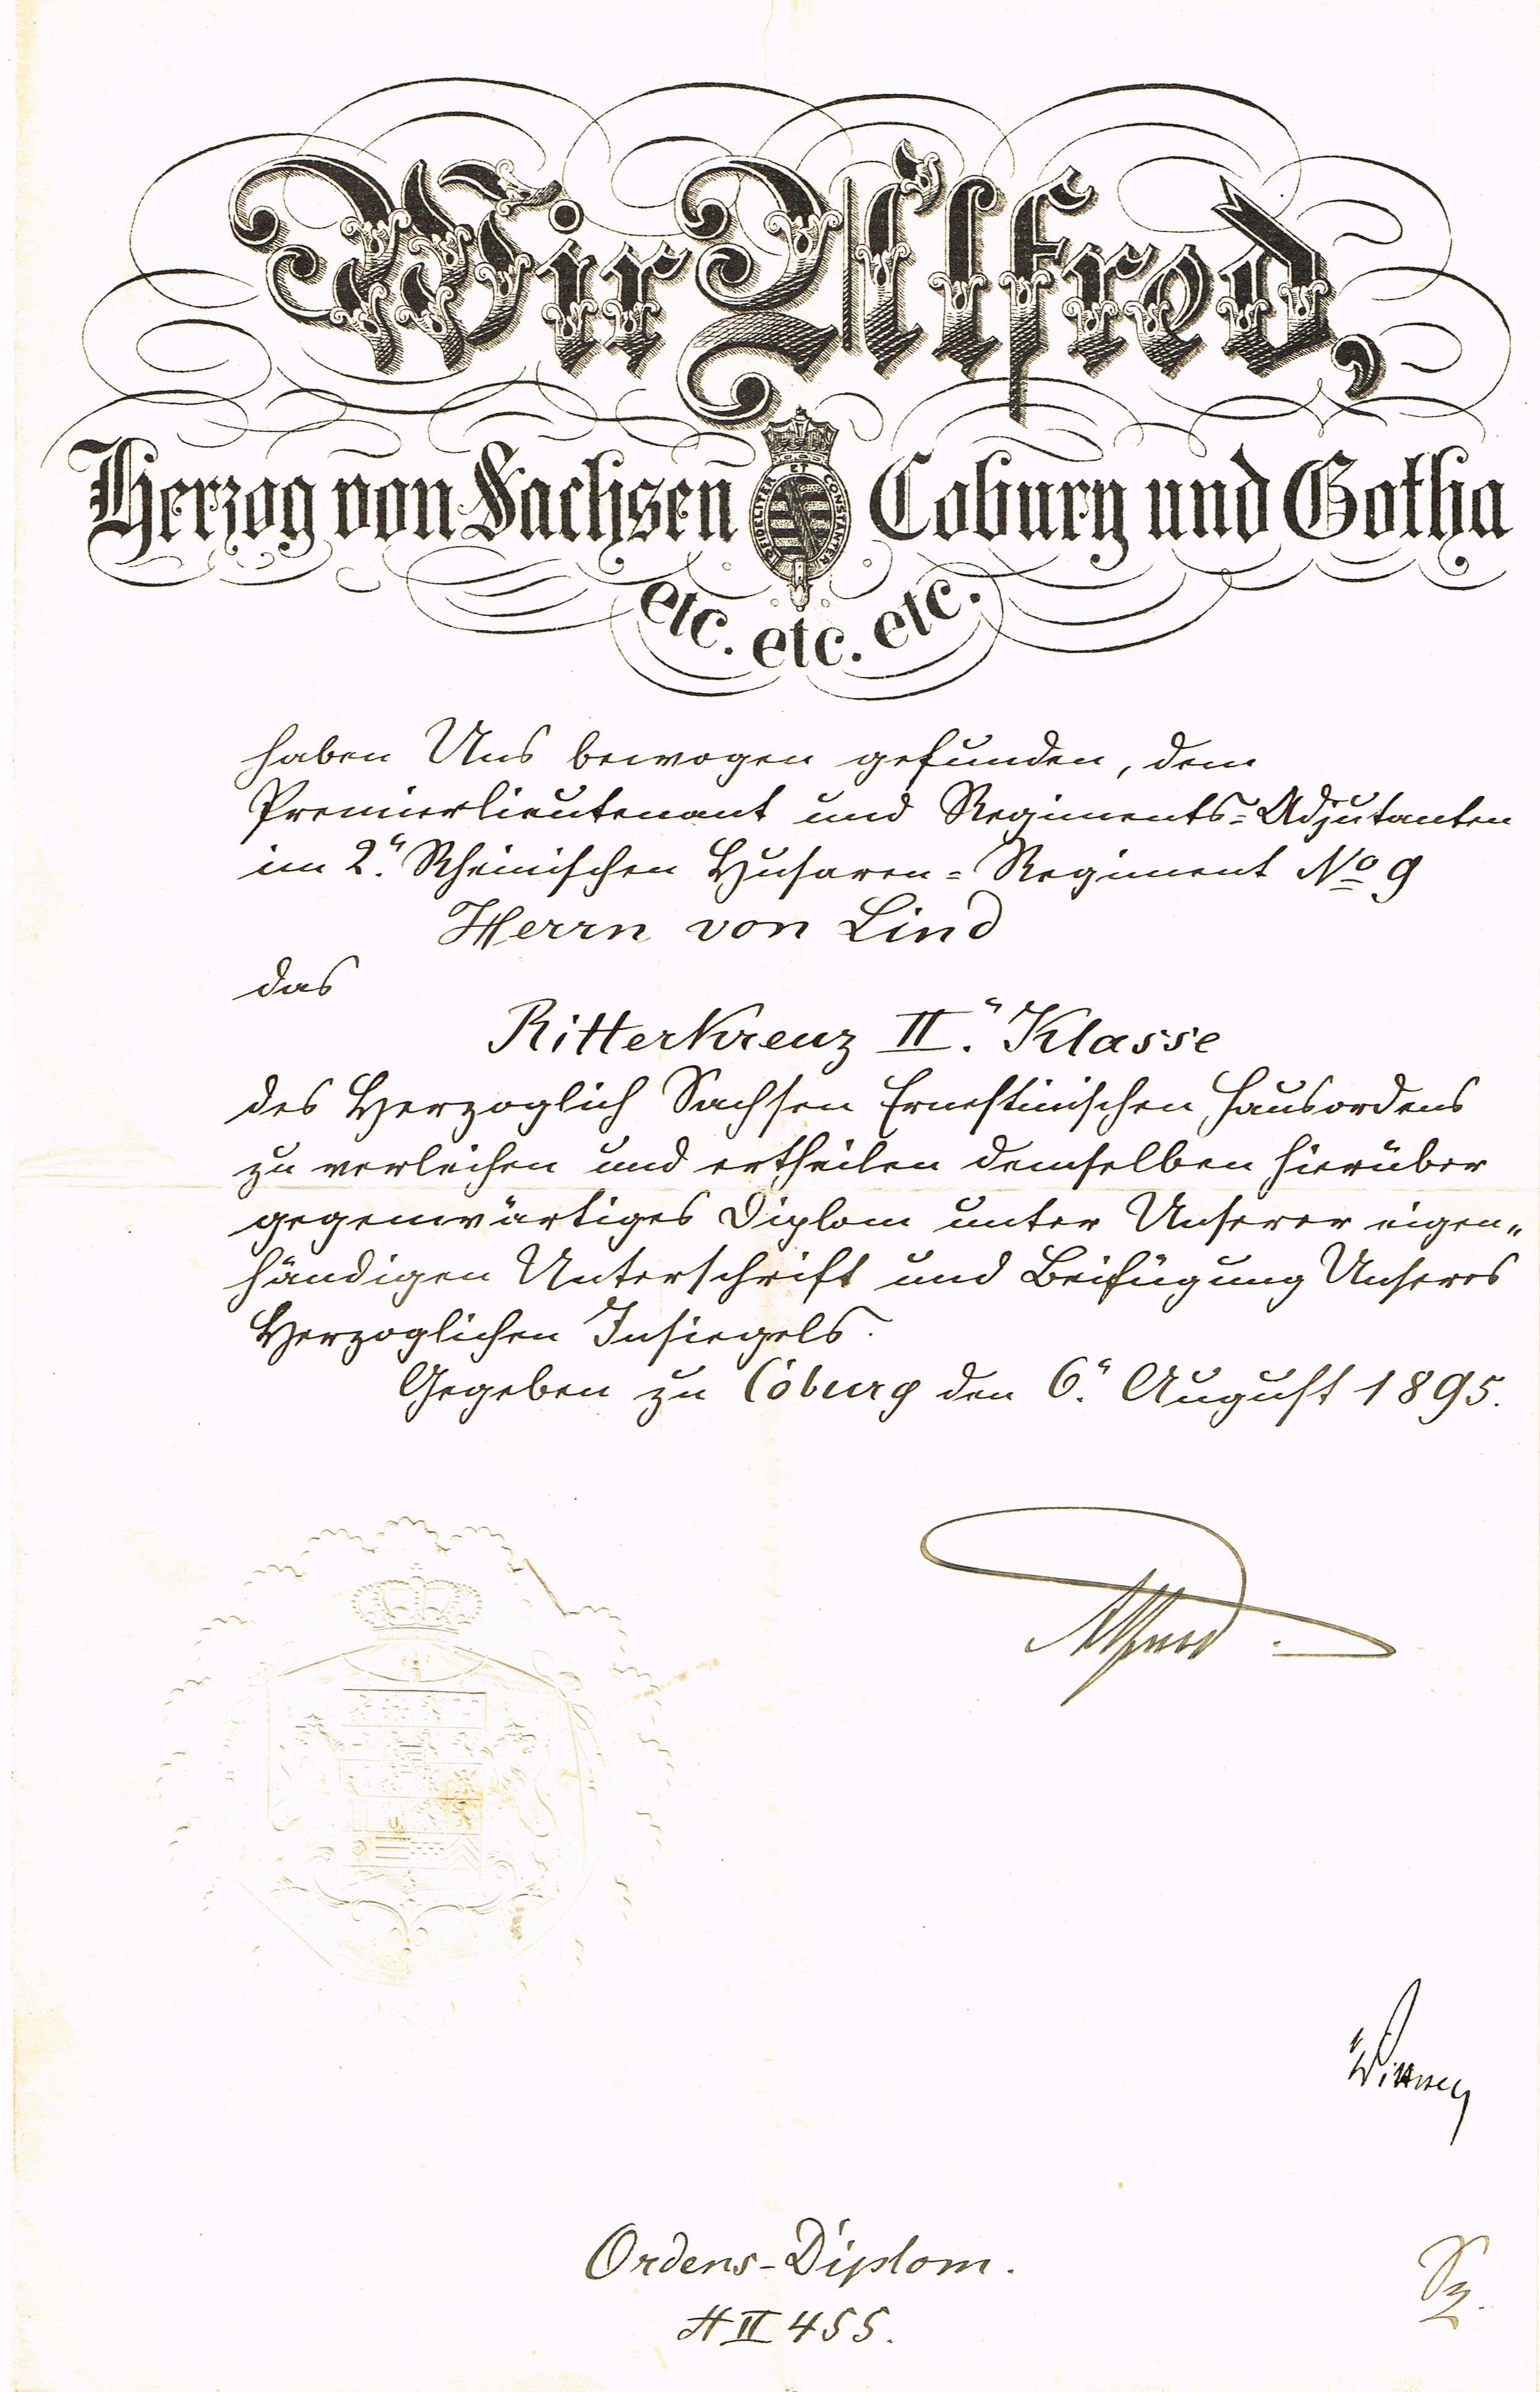 Wir Alfred,
Herzog von Sachsen Coburg und Gotha
FIDELITER ET CONSTANTER
etc. etc. etc.
haben Uns bewogen gefunden, dem
Premierlieutenant und Regiments-Adjutanten
im 2. Rheinischen Husaren-Regiment No 9
Herrn von Lind
das
Ritterkreuz II. Klasse
des Herzoglich Sachsen Ernestinischen Hausordens
zu verleihen und ertheilen demselben hierüber
gegenwärtiges Diplom unter Unserer eigen-
händigen Unterschrift und Beifügung Unseres
Herzoglichen Insiegels.
Gegeben zu Coburg den 6. August 1895.
Alfred
Ordens-Diplom.
H II 455.